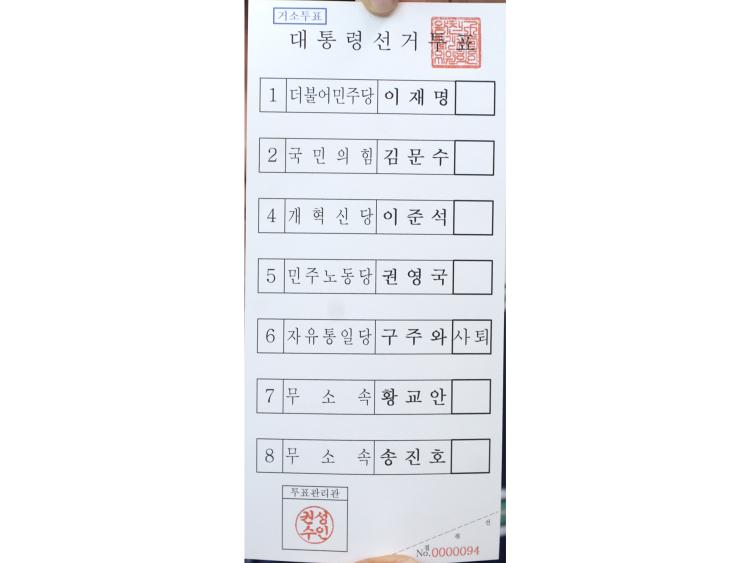 거소투표
대통령선거투표
1 더불어민주당 이재명
2 국민의힘 김문수
4 개혁신당 이준석
5 민주노동당 권영국
6 자유통일당 구주와 사퇴
7 무소속 황교안
8 무소속 송진호
투표관리관
권성
수인
절
취
선
No.0000094